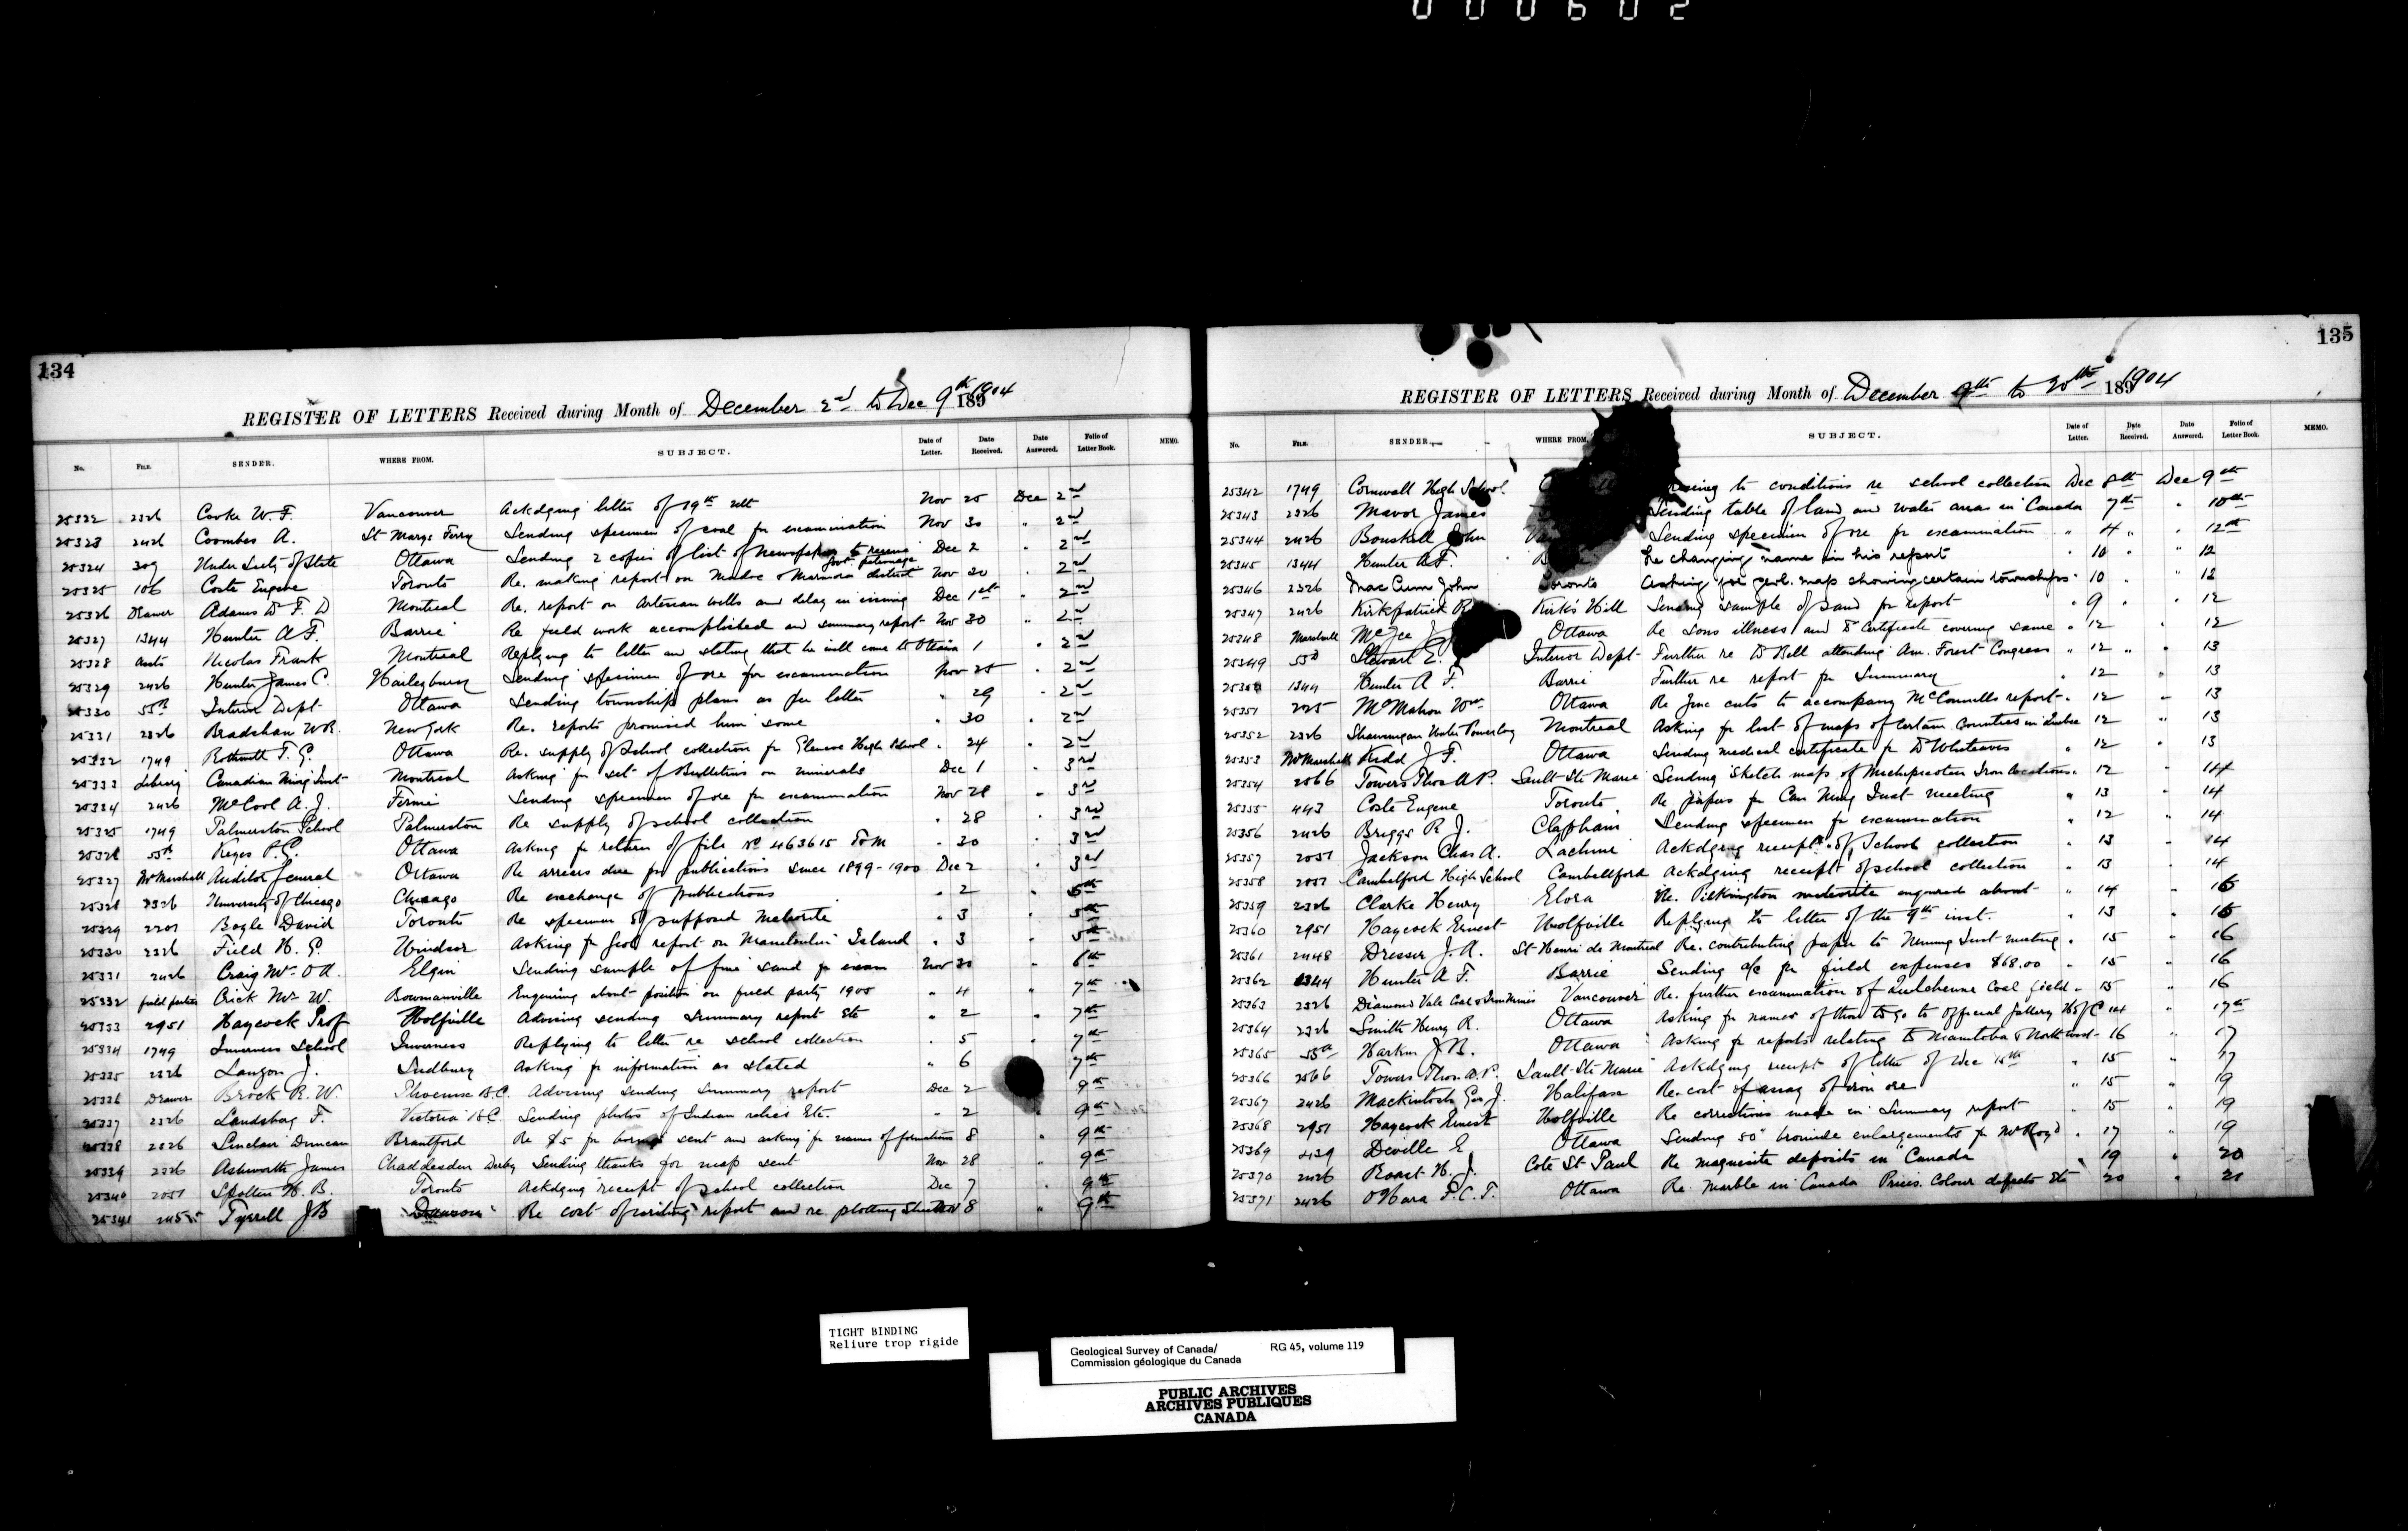 000602
134
REGISTER OF LETTERS Received during Month of December 2nd to Dec 9th 1904
No. FILE. SENDER. WHERE FROM. SUBJECT. Date of Letter. Date Received. Date Answered. Folio of Letter Book. MEMO.
25322 2326 Cooke W. F. Vancouver Ackdging letter of 19th ult Nov 25 Dec 2nd
25323 2426 Coombes A. St Marys Ferry Sending specimen of coal for examination Nov 30 " 2nd
25324 309 Under Secty of State Ottawa Sending 2 copies of list of newspapers to receive Govt. patronage Dec 2 " 2nd
25325 106 Coste Eugene Toronto Re. making report on Madoc & Marmora district Nov 30 " 2nd
25326 Drawer Adams Dr F. D Montreal Re. report on Artesian wells and delay in issuing Dec 1st " 2nd
25327 1344 Hunter A F. Barrie Re field work accomplished and summary report Nov 30 " 2nd
25328 Nicolas Frank Montreal Replying to letter and stating that he will come to Ottawa 1 " 2nd
25329 2426 Hunter James C. Haileybury Sending specimen of ore for examination Nov 25 " 2nd
25330 55B Interior Dept Ottawa Sending township plans as per letter " 29 " 2nd
25331 2326 Bradshaw W R. New York Re. reports promised him some " 30 " 2nd
25332 1749 Rothwell T. G. Ottawa Re. supply of School collection for Glencoe High School " 24 " 2nd
25333 Library Canadian Ming Inst Montreal Asking for set of Bulletins on minerals Dec 1 " 3rd
25334 2426 McCool A. J. Fernie Sending specimen of ore for examination Nov 28 " 3rd
25325 1749 Palmerston School Palmerston Re supply of school collection " 28 3rd
25326 55B Keyes P. G. Ottawa Asking for return of file No 463615 " 30 3rd
25327 Mr Marshall Auditor General Ottawa Re arrears due for publications since 1899-1900 Dec 2 3rd
25328 2326 University of Chicago Chicago Re exchange of publications " 2 5th
25329 2201 Boyle David Toronto Re specimen of supposed Meteorite " 3 5th
25330 2326 Field H. G. Windsor Asking for Geol report on Manitoulin Island " 3 5th
25331 2426 Craig Mrs O A. Elgin Sending sample of fine sand for exam Nov 30 " 6th
25332 field parties Crick Mr W. Bowmanville Enquiring about position on field party 1905 " 4 " 7th
25333 2951 Haycock Prof Wolfville Advising sending summary report Etc " 2 " 7th
25334 1749 Inverness School Inverness Replying to letter re school collection " 5 7th
25335 2326 Langon J. Sudbury Asking for information as stated " 6 7th
25336 Drawer Brock R. W. Phoenix B.C. Advising sending summary report Dec 2 9th
25337 2326 Landsberg F. Victoria B C. Sending photos of Indian relics Etc. " 2 " 9th
25338 2326 Sinclair Duncan Brantford Re $5 for borings sent and asking for names of formations 8 " 9th
25339 2326 Ashworth James Chaddesden Derby Sending thanks for map sent Nov 28 " 9th
25340 2051 Spotton H. B. Toronto Ackdging receipt of school collection Dec 7 " 9th
25341 2455 Tyrrell J B Dawson Re cost of writing report and re plotting 8 " 9th
135
REGISTER OF LETTERS Received during Month of December 9th to 20th 1904
No. FILE. SENDER. WHERE FROM. SUBJECT. Date of Letter. Date Received. Date Answered. Folio of Letter Book. MEMO.
25342 1749 Cornwall High School to conditions re school collection Dec 8th Dec 9th
25343 2326 Mavor James Sending table of land and water areas in Canada 7th " 10th
25344 2426 Bouskill John Sending specimen of ore for examination " 4 " " 12th
25345 1344 Hunter A F. Re changing name in his report " 10 " " 12
25346 2326 Mac Cum John Toronto Asking for geol. map showing certain townships " 10 " " 12
25347 2426 Kirkpatrick R Kirk's Hill Sending sample of sand for report " 9 " 12
25348 Marshall McGee J Ottawa Re sons illness and Dr Certificate covering same " 12 " 12
25349 55D Stewart E. Interior Dept Further re Dr Bell attending Am. Forest Congress " 12 " " 13
25350 1344 Hunter A F. Barrie Further re report for Summary " 12 " 13
25351 225 McMahon Wm Ottawa Re Zinc cuts to accompany McConnells report " 12 " 13
25352 2326 Shawinigan Water Power Coy Montreal Asking for list of maps of certain Counties in Quebec 12 " 13
25353 Mr Marshall Kidd J F. Ottawa Sending medical certificate for Dr Whiteaves " 12 " 13
25354 2566 Towers Thos A P. Sault Ste Marie Sending Sketch map of Michipicoten Iron locations " 12 " 14
25355 443 Coste Eugene Toronto Re papers for Can Ming Inst meeting " 13 " 14
25356 2426 Briggs R J. Clapham Sending specimen for examination " 12 " 14
25357 2051 Jackson Chas A. Lachine Ackdging receipt of School collection " 13 " 14
25358 2051 Cambellford High School Cambellford Ackdging receipt of school collection " 13 " 14
25359 2326 Clarke Henry Elora Re. Pilkington meteorite enquired about " 14 " 15
25360 2951 Haycock Ernest Wolfville Replying to letter of the 9th inst. " 13 " 15
25361 2448 Dresser J. A. St Henri de Montreal Re. contributing paper to Mining Inst meeting " 15 " 16
25362 1344 Hunter A F. Barrie Sending a/c for field expenses $68.00 " 15 " 16
25363 2326 Diamond Vale Coal & Iron Mines Vancouver Re. further examination of Quilchenna Coal field " 15 " 16
25364 2326 Smith Henry R. Ottawa Asking for names of those to go to Official Gallery H of C 14 " 17th
25365 55a Harkin J B. Ottawa Asking for reports relating to Manitoba & Northwest 16 " 17
25366 2566 Towers Thos A. P. Sault Ste Marie Ackdging receipt of letter of Dec 14th " 15 " 17
25367 2426 Mackintosh Geo J. Halifax Re. cost of assay of iron ore " 15 " 19
25368 2951 Haycock Ernest Wolfville Re corrections made in Summary report " 15 " 19
25369 439 Deville E Ottawa Sending 50" bromide enlargements for Mr Boyd " 17 " 19
25370 2426 Roast H. J. Cote St Paul Re magnesite deposits in Canada " 19 " 20
25371 2426 O'Hara P. C. T. Ottawa Re. Marble in Canada Prices. Colour defects Etc 20 " 21
TIGHT BINDING
Reliure trop rigide
Geological Survey of Canada/ RG 45, volume 119
Commission géologique du Canada
PUBLIC ARCHIVES
ARCHIVES PUBLIQUES
CANADA